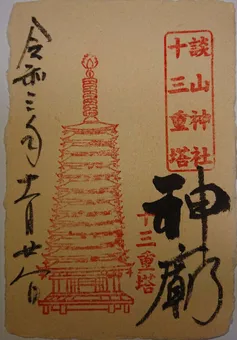 談山神社
十三重塔
神廟
十三重塔
令和三年十一月廿八日